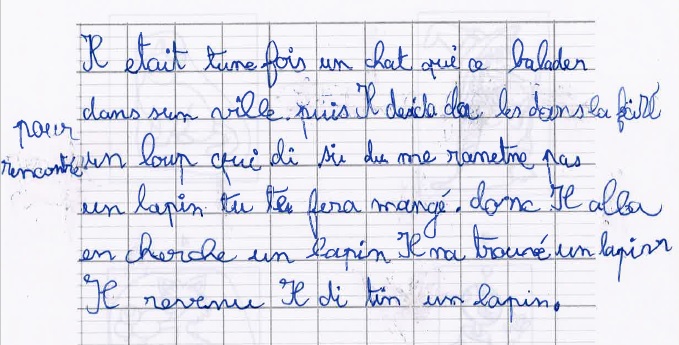 Il etait tune fois un chat qui ce balader
dans sun ville. puis Il desida da les dans la fôré
pour
rencontré un loup qui di si du me rametne pas
un lapin tu te fera mangé. donc Il alla
en cherche un lapin Il na trouvé un lapin
Il revenu Il di tin un lapin.